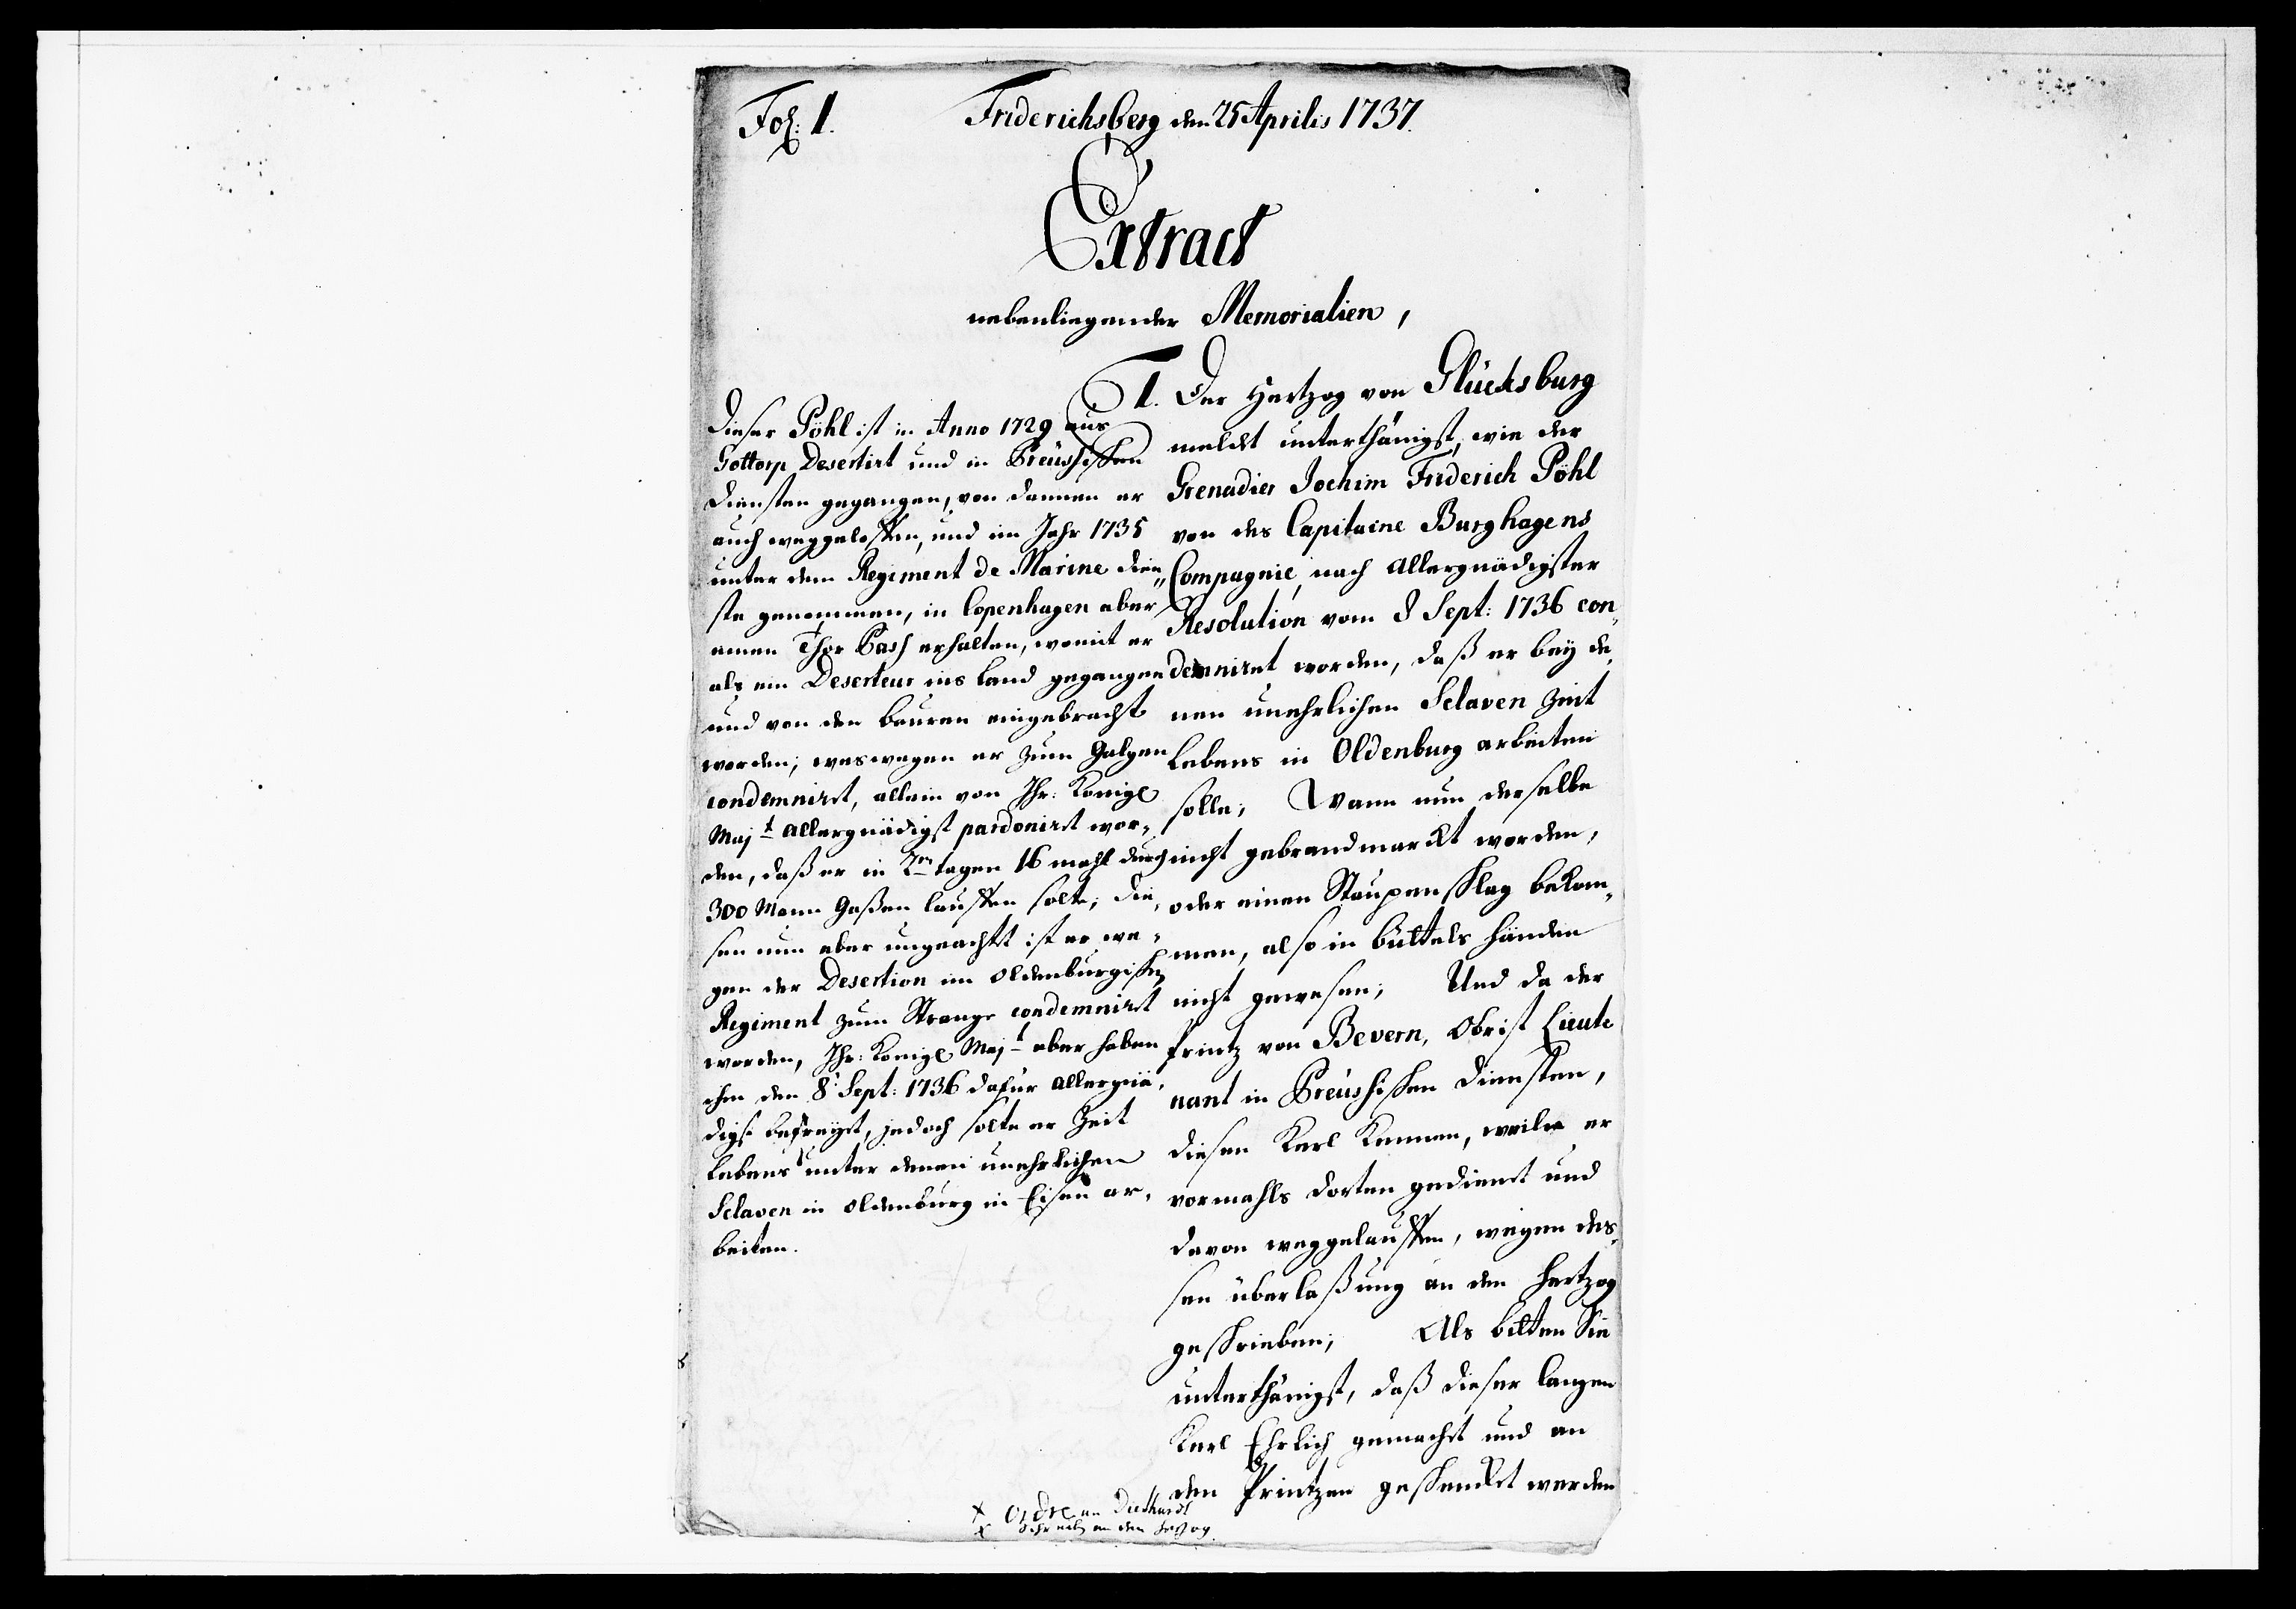 Fol: 1.
Friderichsberg den 25 Aprilis 1737.
Extract
nebenliegender Memorialien,
Dieser Pöhl ist in Anno 1729 aus
Gottorp Desertirt und in Preussischen
Diensten gegangen, von dannen er
auch weggeloffen, und im Jahr 1735
unter dem Regiment de Marine Dien„
ste genommen, in Copenhagen aber
einen Thor Pass erhalten, womit er
als ein Deserteur ins Land gegangen
und von den bauren eingebracht
worden; weswegen er zum Galgen
condemnirt, allein von Ihr: Königl
Majt Allergnädigst pardonirt wor„
den, daß er in 2en tagen 16 mahl durch
300 Mann Gaßen lauffen solte; die„
sen nun aber ungeachtet ist er we„
gen der Desertion im Oldenburgischen
Regiment zum Strange condemnirt
worden, Ihr: Königl Majt aber haben
ihn den 8t Sept: 1736 dafür allergnä„
digst befreyet, jedoch solte er Zeit
lebens unter denen unehrlichen
Sclaven in Oldenburg in Eisen ar„
beiten.
1. Der Hertzog von Glücksburg
meldet unterthänigst, wie der
Grenadier Jochim Friderich Pöhl
von des Capitaine Burghagens
Compagnie, nach Allergnädigster
Resolution vom 8 Sept: 1736 con„
demniret worden, daß er bey de„
nen unehrlichen Sclaven Zeit
Lebens in Oldenburg arbeiten
solle; Wann nun derselbe
nicht gebrandmarckt worden,
oder einen Staupenschlag bekom„
men, also in büttels händen
nicht gewesen; Und da der
Printz von Bevern, Obrist Lieute
nant in Preussischen Diensten,
diesen Kerl kennen, weile er
vormahls dorten gedienet und
davon weggelauffen, wegen des„
sen überlaßung an den Hertzog
geschrieben; Als bitten Sie
unterthänigst, daß dieser lange
Kerl Ehrlich gemacht und an
den Printzen geschencket werden
x Ordre an
x an den Hertzog.